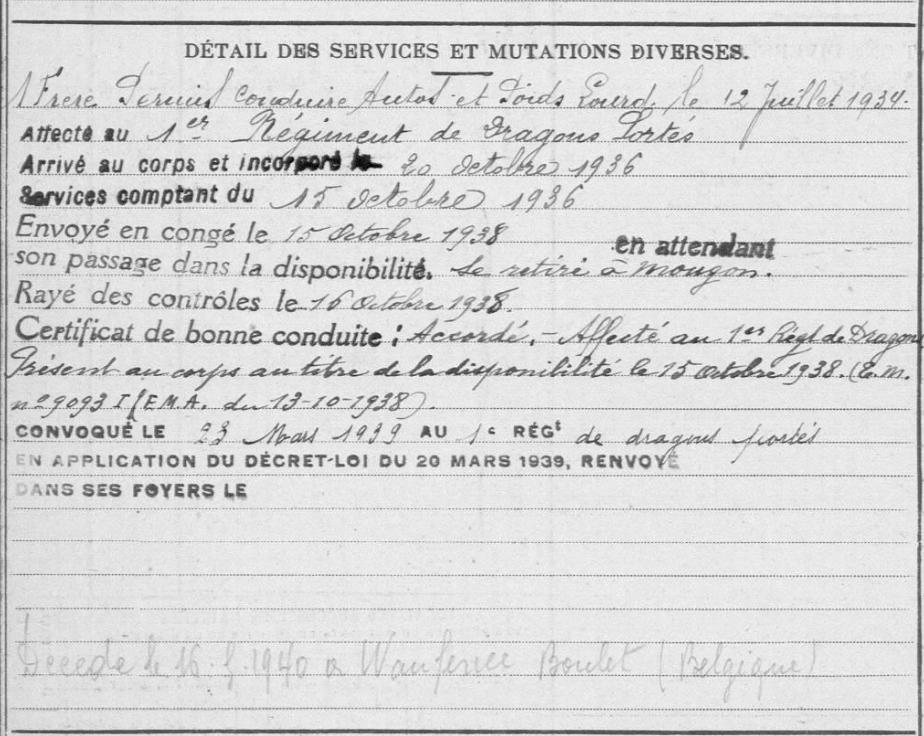 DÉTAIL DES SERVICES ET MUTATIONS DIVERSES.
1 Frère Permis Conduire Autos et Poids Lourd. le 12 Juillet 1934.
Affecté au 1er Régiment de Dragons Portés
Arrivé au corps et incorporé le 20 Octobre 1936
Services comptant du 15 Octobre 1936
Envoyé en congé le 15 Octobre 1938 en attendant
son passage dans la disponibilité. Se retire à Mougon.
Rayé des contrôles le 16 Octobre 1938.
Certificat de bonne conduite : Accordé. - Affecté au 1er Régt de Dragons
Présent au corps au titre de la disponibilité le 15 Octobre 1938. (E.M.
n° 9093 I/E.M.A. du 13-10-1938).
CONVOQUÉ LE 23 Mars 1939 AU 1e RÉGt de dragons portés
EN APPLICATION DU DÉCRET-LOI DU 20 MARS 1939, RENVOYÉ
DANS SES FOYERS LE
Décédé le 16. 5. 1940 à Wanfercée Boulet (Belgique)